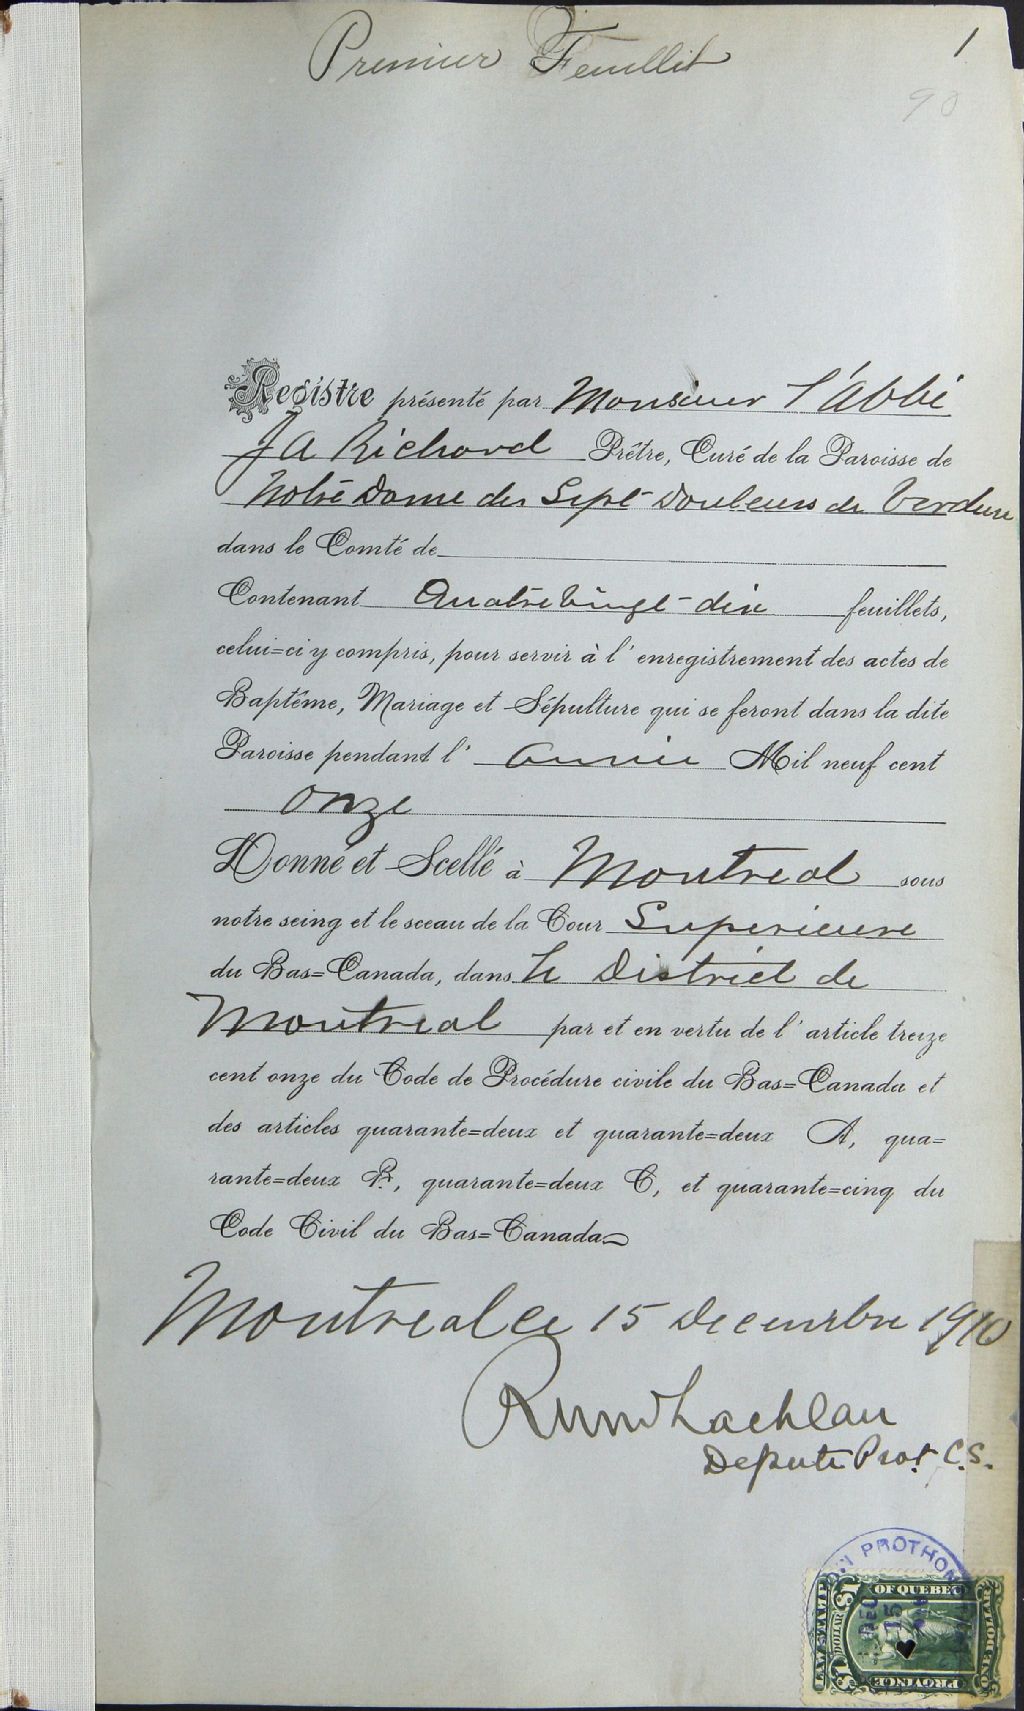 Premier Feuillet
1
90
Registre présenté par Monsieur l'Abbé
J A Richard Prêtre, Curé de la Paroisse de
Notre Dame des Sept Douleurs de Verdun
dans le Comté de
Contenant Quatre vingt-dix feuillets,
celui=ci y compris, pour servir à l'enregistrement des actes de
Baptême, Mariage et Sépulture qui se feront dans la dite
Paroisse pendant l'année Mil neuf cent
onze
Donné et Scellé à Montreal sous
notre seing et le sceau de la Cour Superieure
du Bas=Canada, dans le District de
Montreal par et en vertu de l'article treize
cent onze du Code de Procédure civile du Bas=Canada et
des articles quarante=deux et quarante=deux A, qua=
rante=deux B, quarante=deux C, et quarante=cinq du
Code Civil du Bas=Canada
Montreal ce 15 Decembre 1910
Lachlan
Depute Prot. C.S.
PROTHON
OF QUEBEC
DEC
15
LAW STAMP
$1
DOLLAR
ONE DOLLAR
PROVINCE